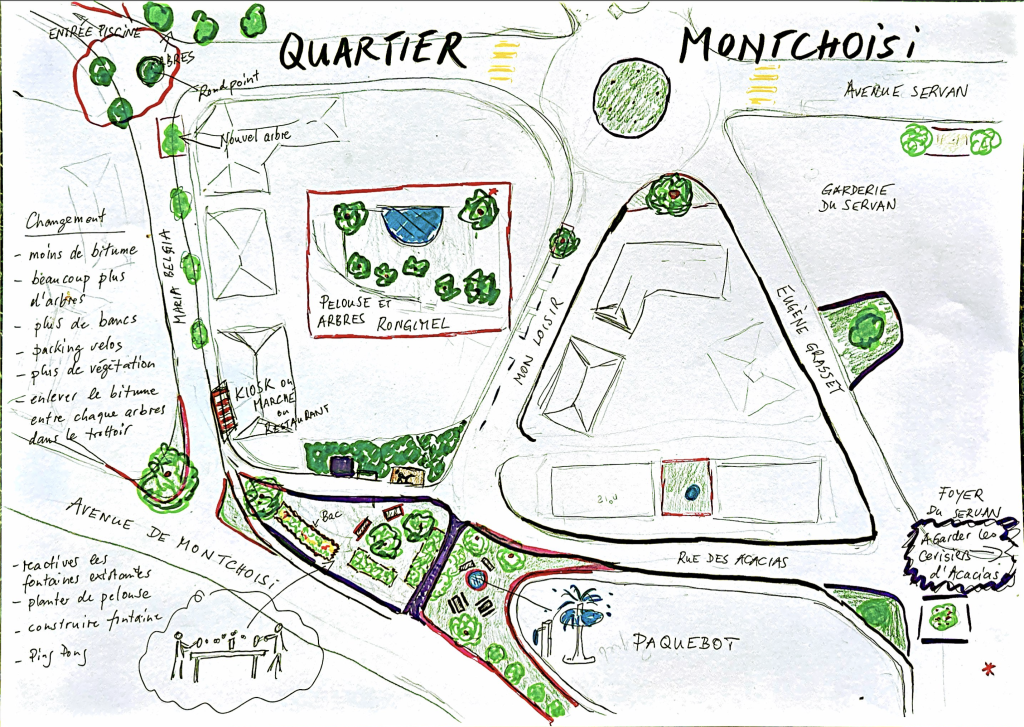 QUARTIER MONTCHOISI
ENTRÉE PISCINE
ARBRES
Rondpoint
Nouvel arbre
AVENUE SERVAN
GARDERIE
DU SERVAN
Changement
- moins de bitume
- beaucoup plus
d'arbres
- plus de bancs
- packing velos
- plus de végétation
- enlever le bitume
entre chaque arbres
dans le trottoir
MARIA BELGIA
PELOUSE ET
ARBRES RONGIMEL
MON LOISIR
EUGÈNE GRASSET
KIOSK OU
MARCHE
OU
RESTAURANT
Bac
AVENUE DE MONTCHOISI
RUE DES ACACIAS
FOYER
DU SERVAN
A Garder les
Cerisiers
d'Acacias
- reactives les
fontaines existantes
- planter de pelouse
- construire fontaine
- Ping Pong
PAQUEBOT